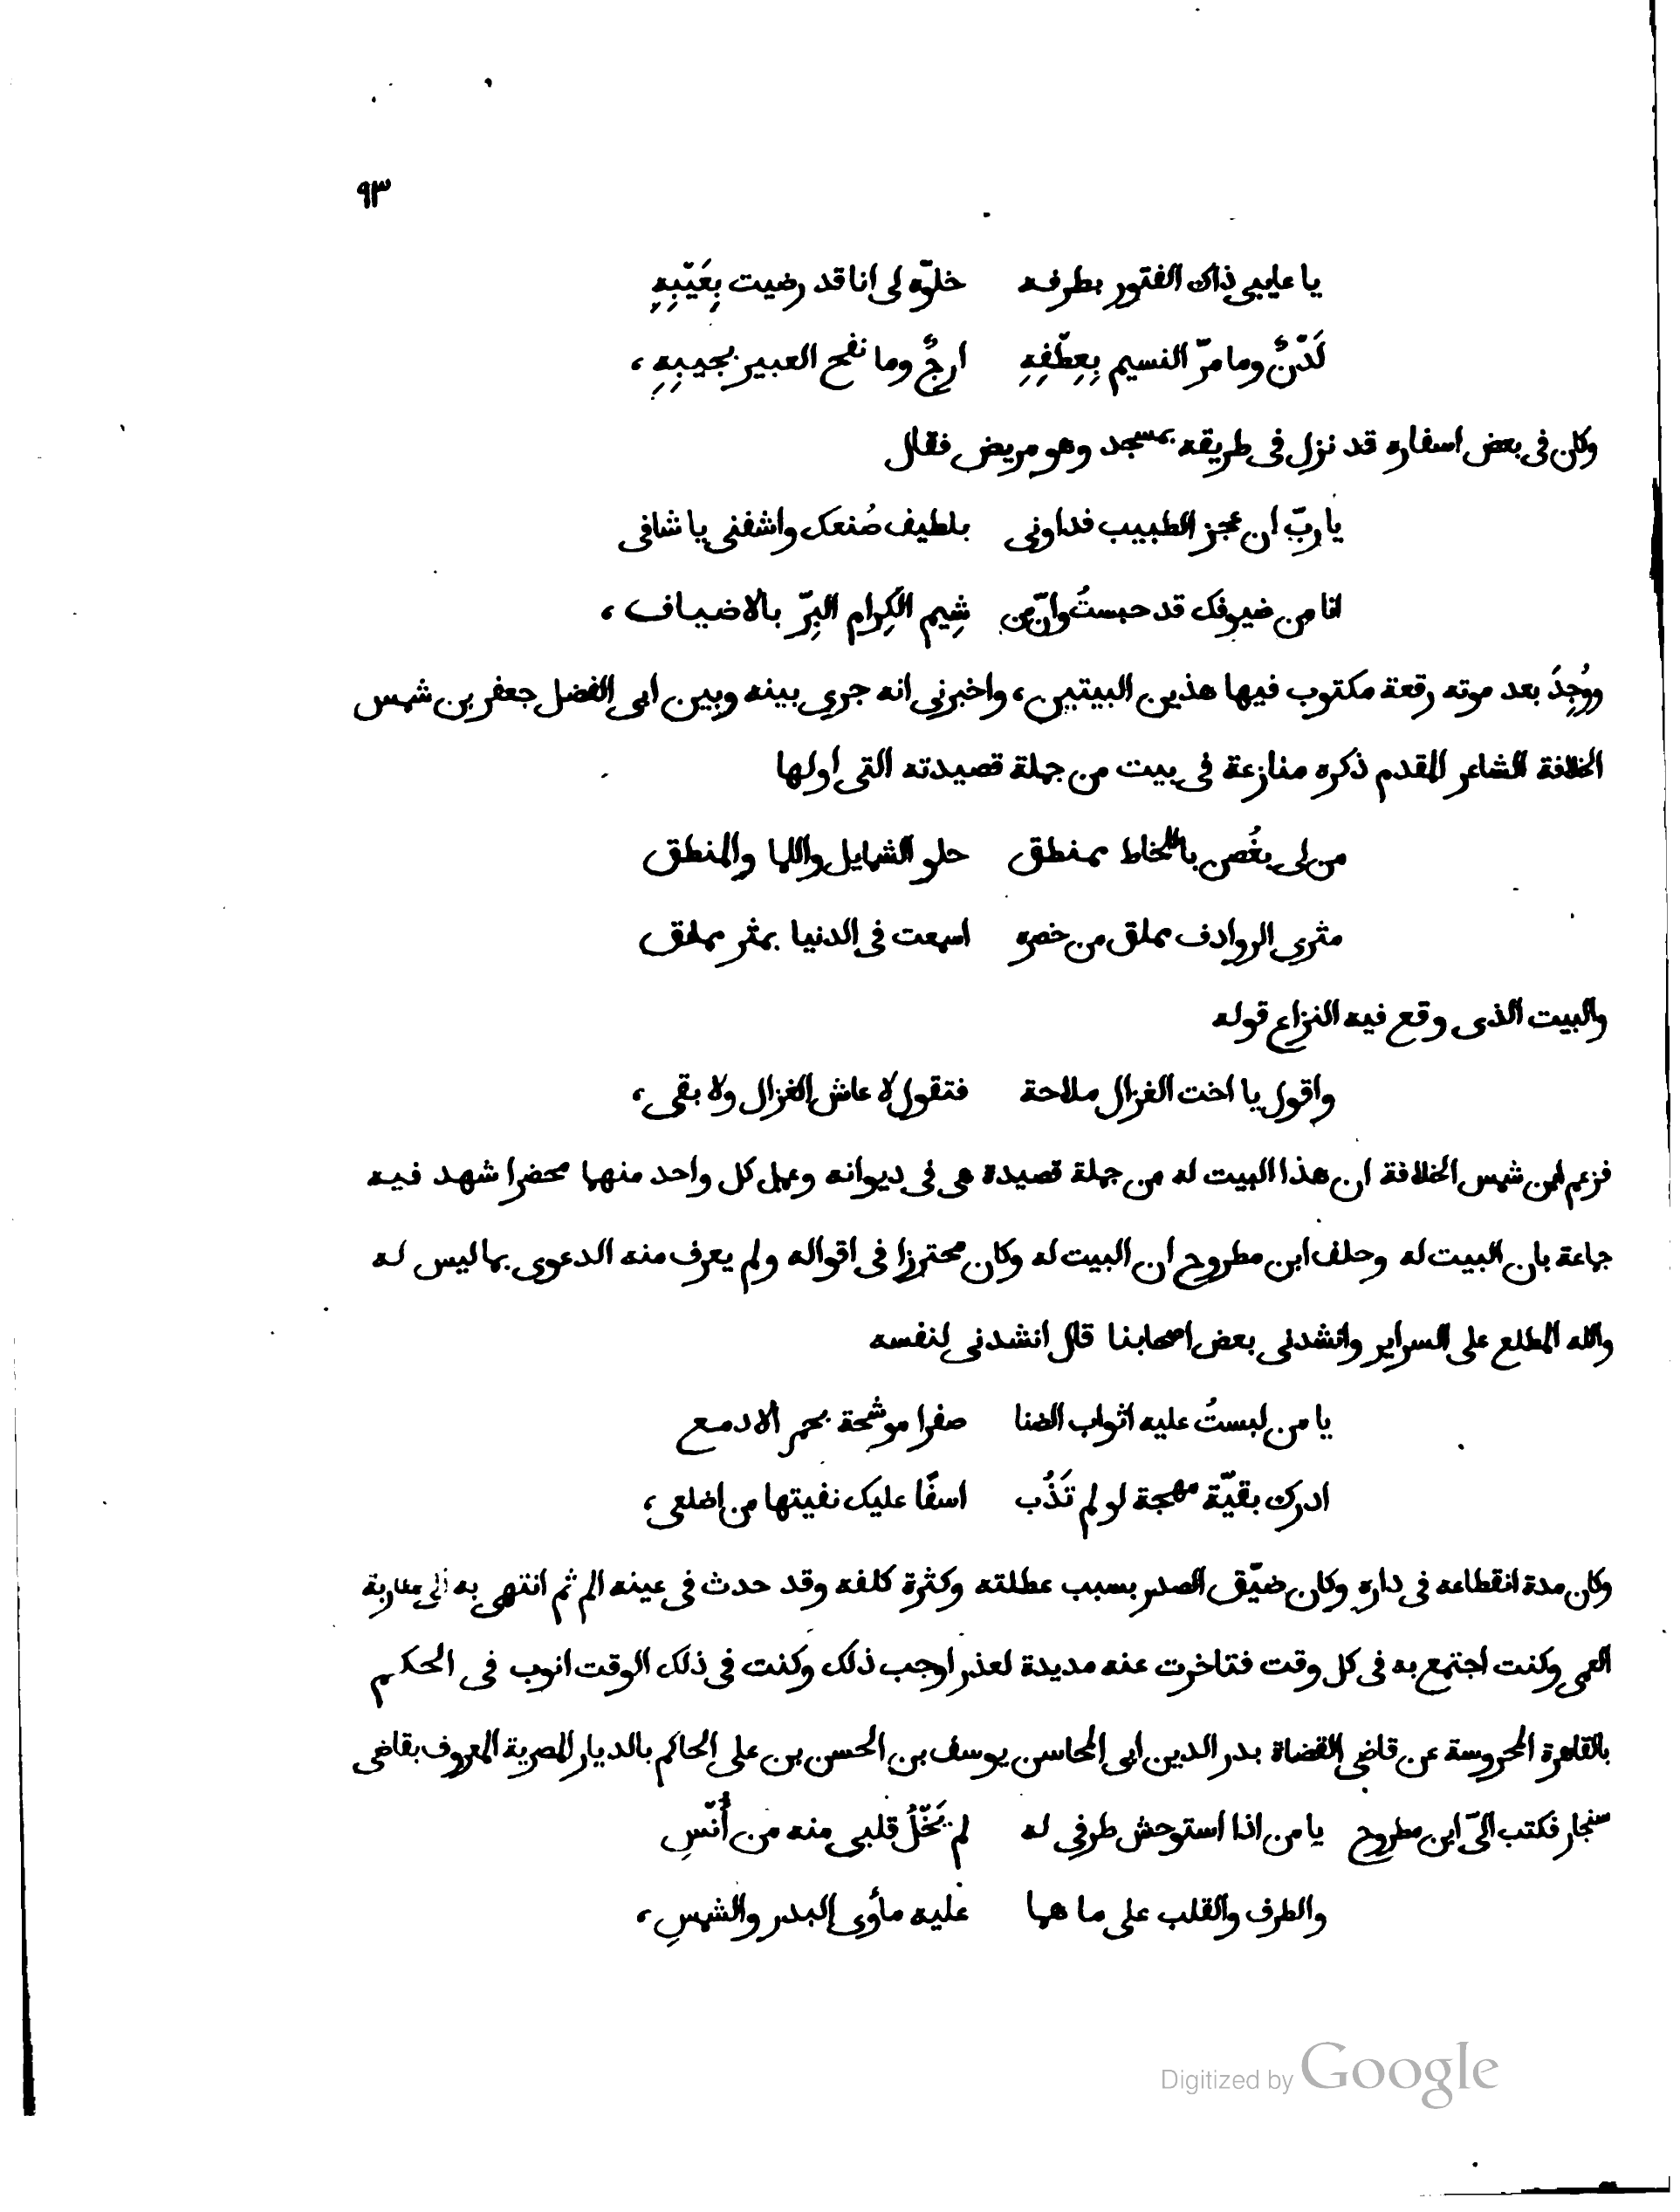 ٩٣
يا عايبي ذاك الفتور بطرفه خلوّه لى انا قد رضيت بِعَيْبِهِ
لَدْنٌ وما مرّ النسيم بِعِطْفِهِ ارجٌ وما نفح العبير بجيبِهِ،
وكان فى بعض اسفاره قد نزل فى طريقه بمسجد وهو مريض فقال
يا ربّ ان عجز الطبيب فداونى بلطيف صُنعك واشفنى يا شافى
انا من ضيوفك قد حبستُ وانّ من شِيم الكِرام البِرّ بالاضياف،
ووُجِدَ بعد موته رقعة مكتوب فيها هذين البيتين، واخبرنى انه جرى بينه وبين ابى الفضل جعفر بن شمس
الخلافة الشاعر المقدم ذكره منازعة فى بيت من جملة قصيدته التى اولها
من لى بغُصن باللحاظ ممنطق حلو الشمايل واللما والمنطق
مثرى الروادف مملق من خصره اسمعت فى الدنيا بمثر مملق
والبيت الذى وقع فيه النزاع قوله
واقول يا اخت الغزال ملاحة فتقول لا عاش الغزال ولا بقى،
فزعم ابن شمس الخلافة ان هذا البيت له من جملة قصيدة هى فى ديوانه وعمل كل واحد منهما محضرا شهد فيه
جماعة بان البيت له وحلف ابن مطروح ان البيت له وكان محترزا فى اقواله ولم يعرف منه الدعوى بما ليس له
والله المطلع على السراير وانشدنى بعض اصحابنا قال انشدنى لنفسه
يا من لبستُ عليه اثواب الضنا صفرا موشحة بحمر الادمع
ادرك بقيّة مهجة لو لم تَذُب اسفًا عليك نفيتها من اضلعى،
وكان مدة انقطاعه فى داره وكان ضيّق الصدر بسبب عطلته وكثرة كلفه وقد حدث فى عينه الم ثم انتهى به الى مقاربة
العمى وكنت اجتمع به فى كل وقت فتاخرت عنه مديدة لعذر اوجب ذلك وكنت فى ذلك الوقت انوب فى الحكم
بالقاهرة المحروسة عن قاضى القضاة بدر الدين ابى المحاسن يوسف بن الحسن بن على الحاكم بالديار المصرية المعروف بقاضى
سنجار فكتب الىّ ابن مطروح يا من اذا استوحش طرفى له لم يَخْلُ قلبى منه من أُنْسِ
والطرف والقلب على ما هما عليه مأوى البدر والشمسِ،
Digitized by Google